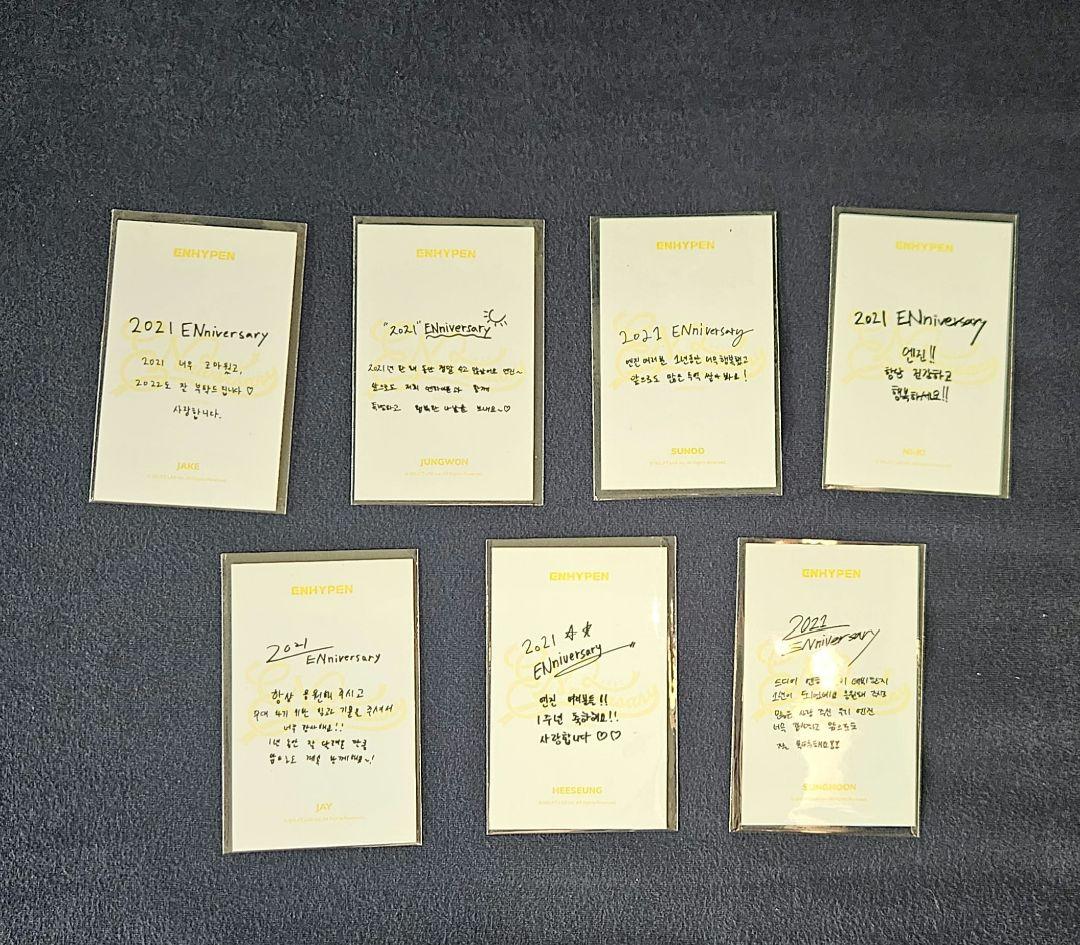 ENHYPEN
2021 ENniversary
2021 너무 고마웠고,
2022도 잘 부탁드립니다 ♡
사랑합니다.
JAKE
ENHYPEN
"2021" ENniversary
2021년 한 해 동안 정말 수고 많았어요 엔진~
앞으로도 저희 함께
특별하고 행복한 나날을 보내요~♡
JUNGWON
ENHYPEN
2021 ENniversary
엔진 여러분 1년동안 너무 행복했고
앞으로도 많은 추억 쌓아 봐요!
SUNOO
ENHYPEN
2021 ENniversary
엔진!!
항상 건강하고
행복하세요!!
NI-KI
ENHYPEN
2021
ENniversary
항상 응원해 주시고
무대 위한 힘과 주셔서
너무 감사해요!!
1년 동안 잘 만큼
앞으로도 계속 함께해요~!
JAY
ENHYPEN
2021 ☆☆
ENniversary
엔진 여러분들!!
1주년 축하해요!!
사랑합니다 ♡♡
HEESEUNG
ENHYPEN
2021
ENniversary
드디어 데뷔한지
1년이 되었네요 응원해 주시고
많은 사랑 주신 우리 엔진
너무 감사하고 앞으로도
잘 부탁해요!!
SUNGHOON